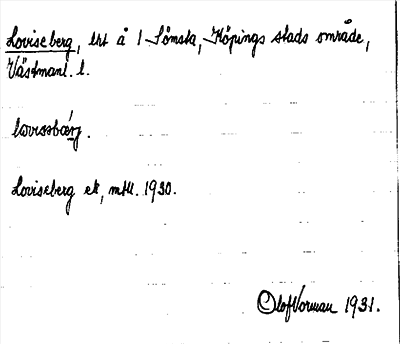 Loviseberg, lht å 1 Sömsta, Köpings stads område,
Västmanl. l.
lovissbærj.
Loviseberg ek, mtll. 1930.
Olof Vorman 1931.